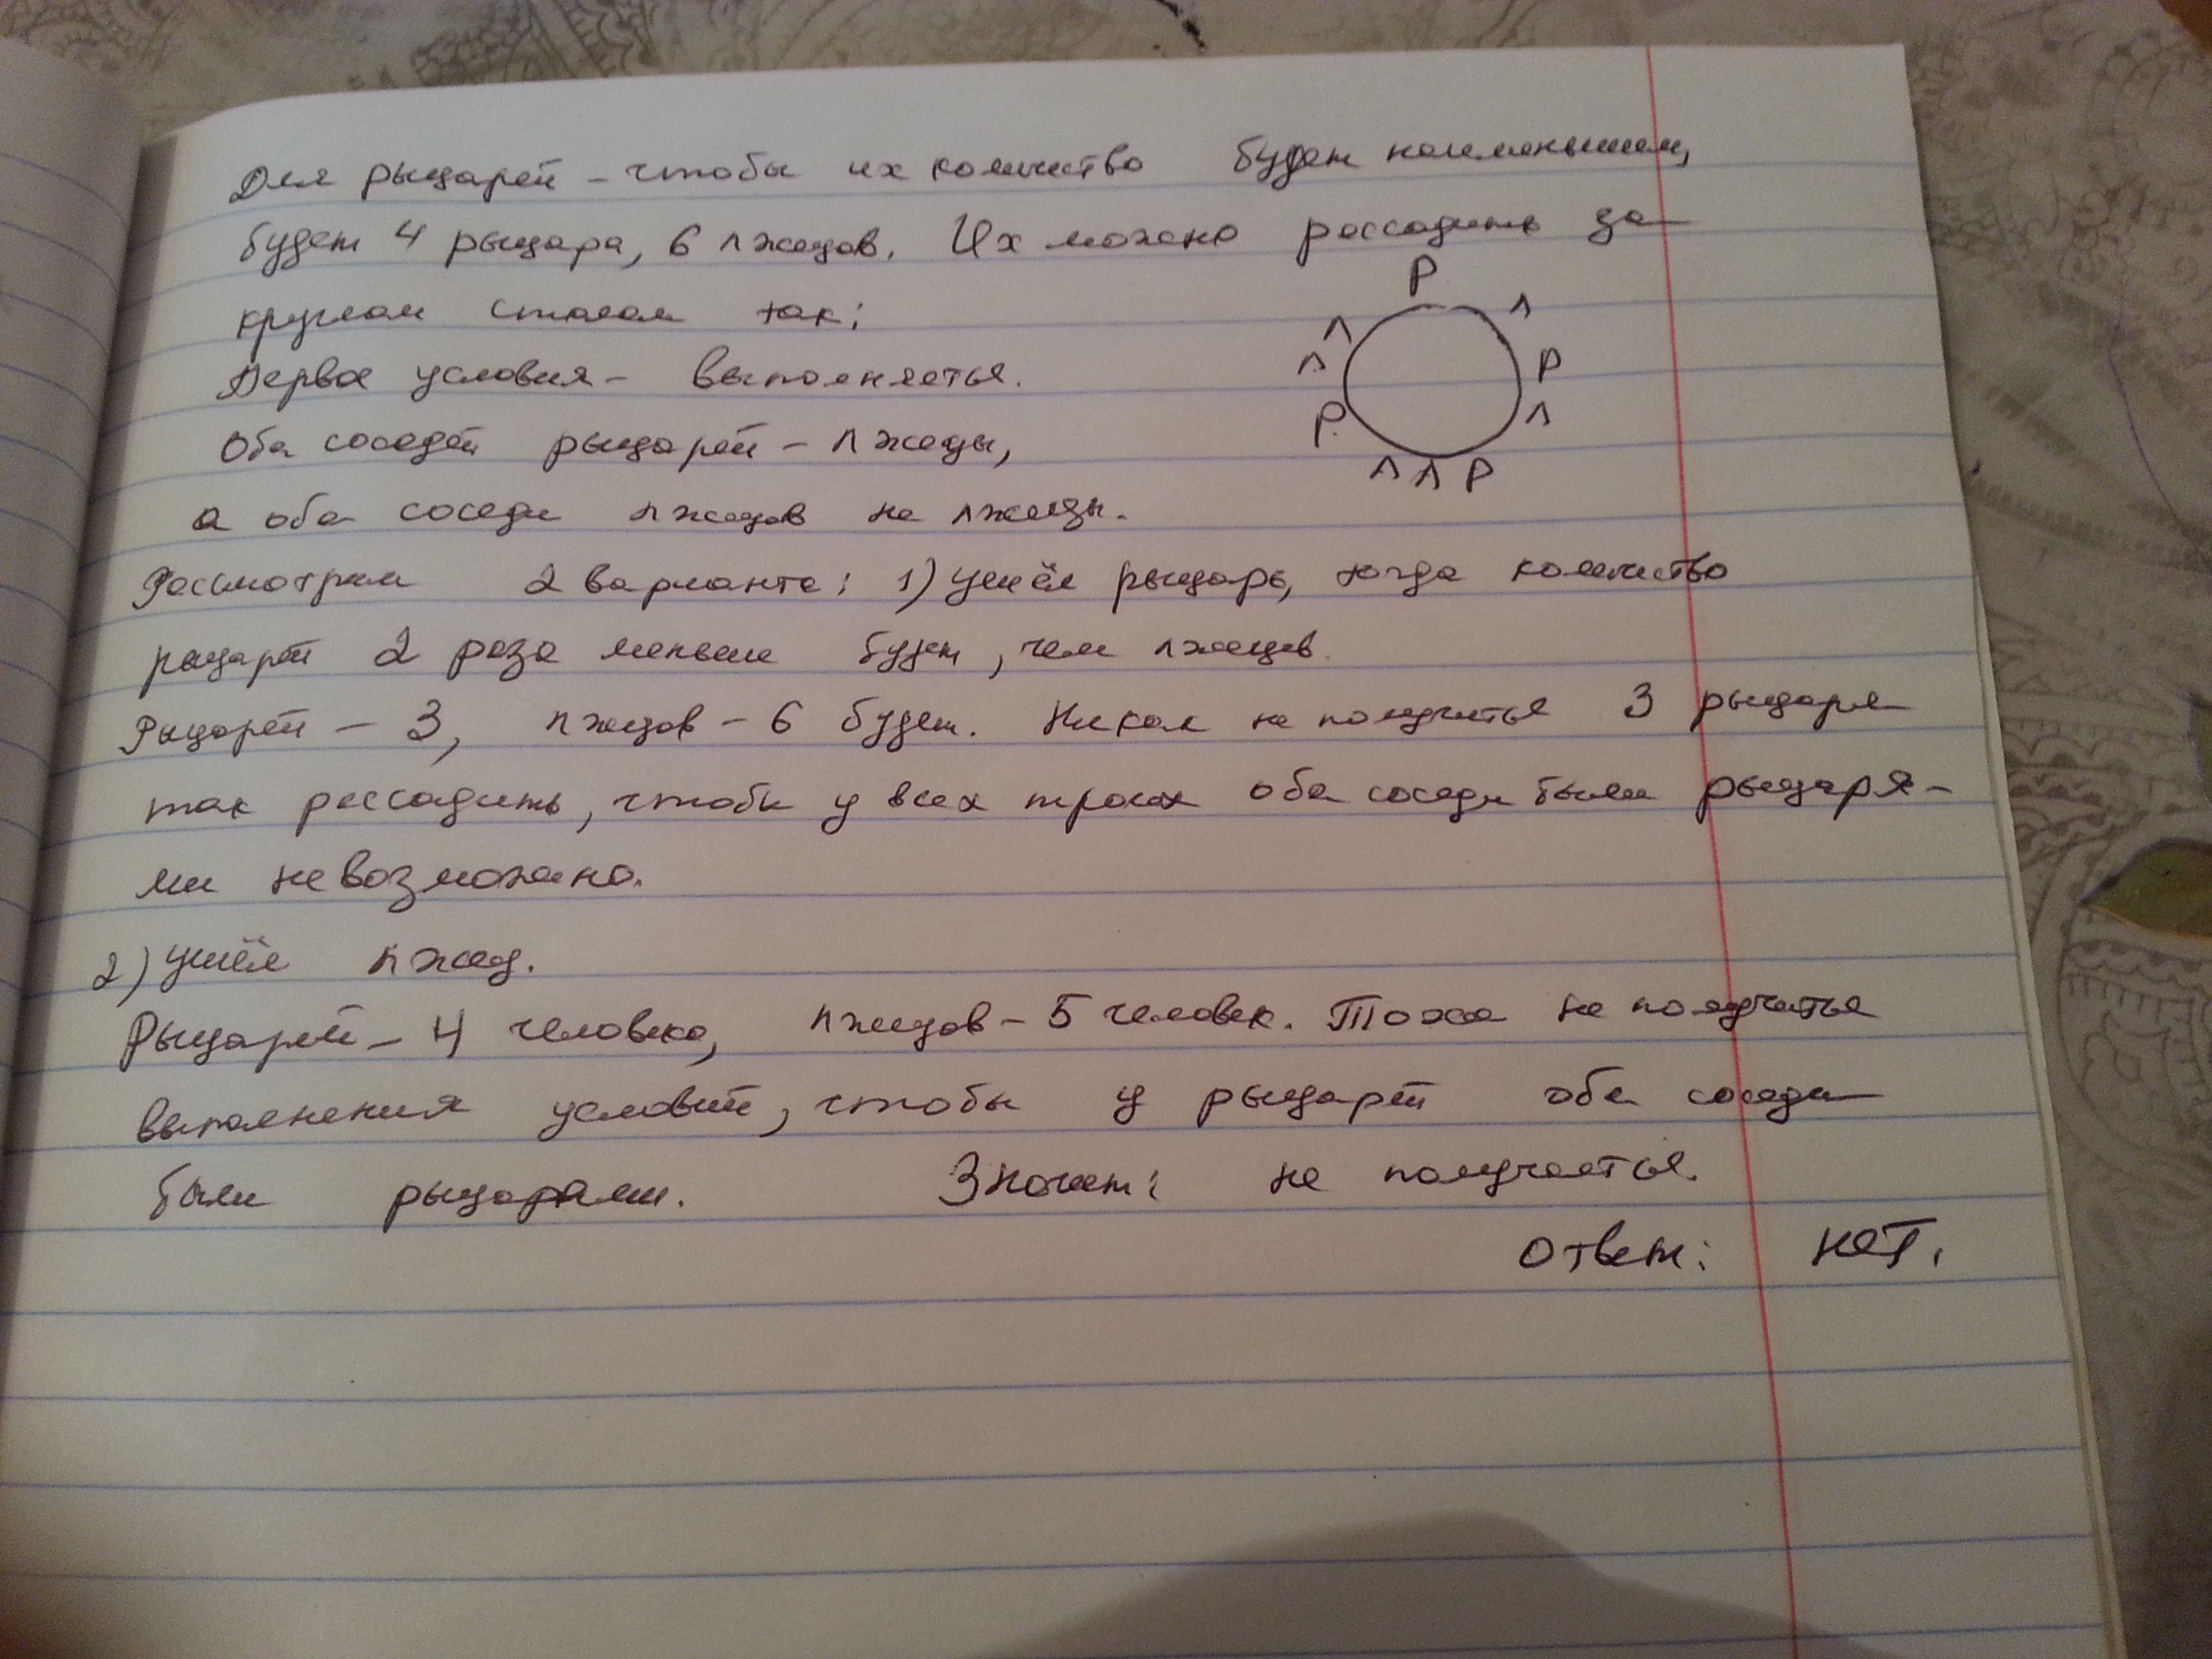 Для рыцарей - чтобы их количество будет наименьшим,
будет 4 рыцара, 6 лжецов. Их можно рассадить за
круглом столом так:
Первое условия - выполняеться.
Оба соседей рыцарей - лжецы,
а оба соседи лжецов не лжецы.
Р
Л
Р
Л
Р
Л
Л
Р
Л
Л
Рассмотрим 2 варианта: 1) ушёл рыцарь, тогда количество
рыцарей 2 раза меньше будет, чем лжецов.
Рыцарей - 3, лжецов - 6 будет. Никак не получиться 3 рыцаря
так рассадить, чтобы у всех троих оба соседи были рыцаря-
ми невозможно.
2) ушёл лжец.
Рыцарей - 4 человека, лжецов - 5 человек. Тоже не получиться
выполнения условий, чтобы у рыцарей оба соседи
были рыцарами. Значит: не получаеться.
Ответ: нет.